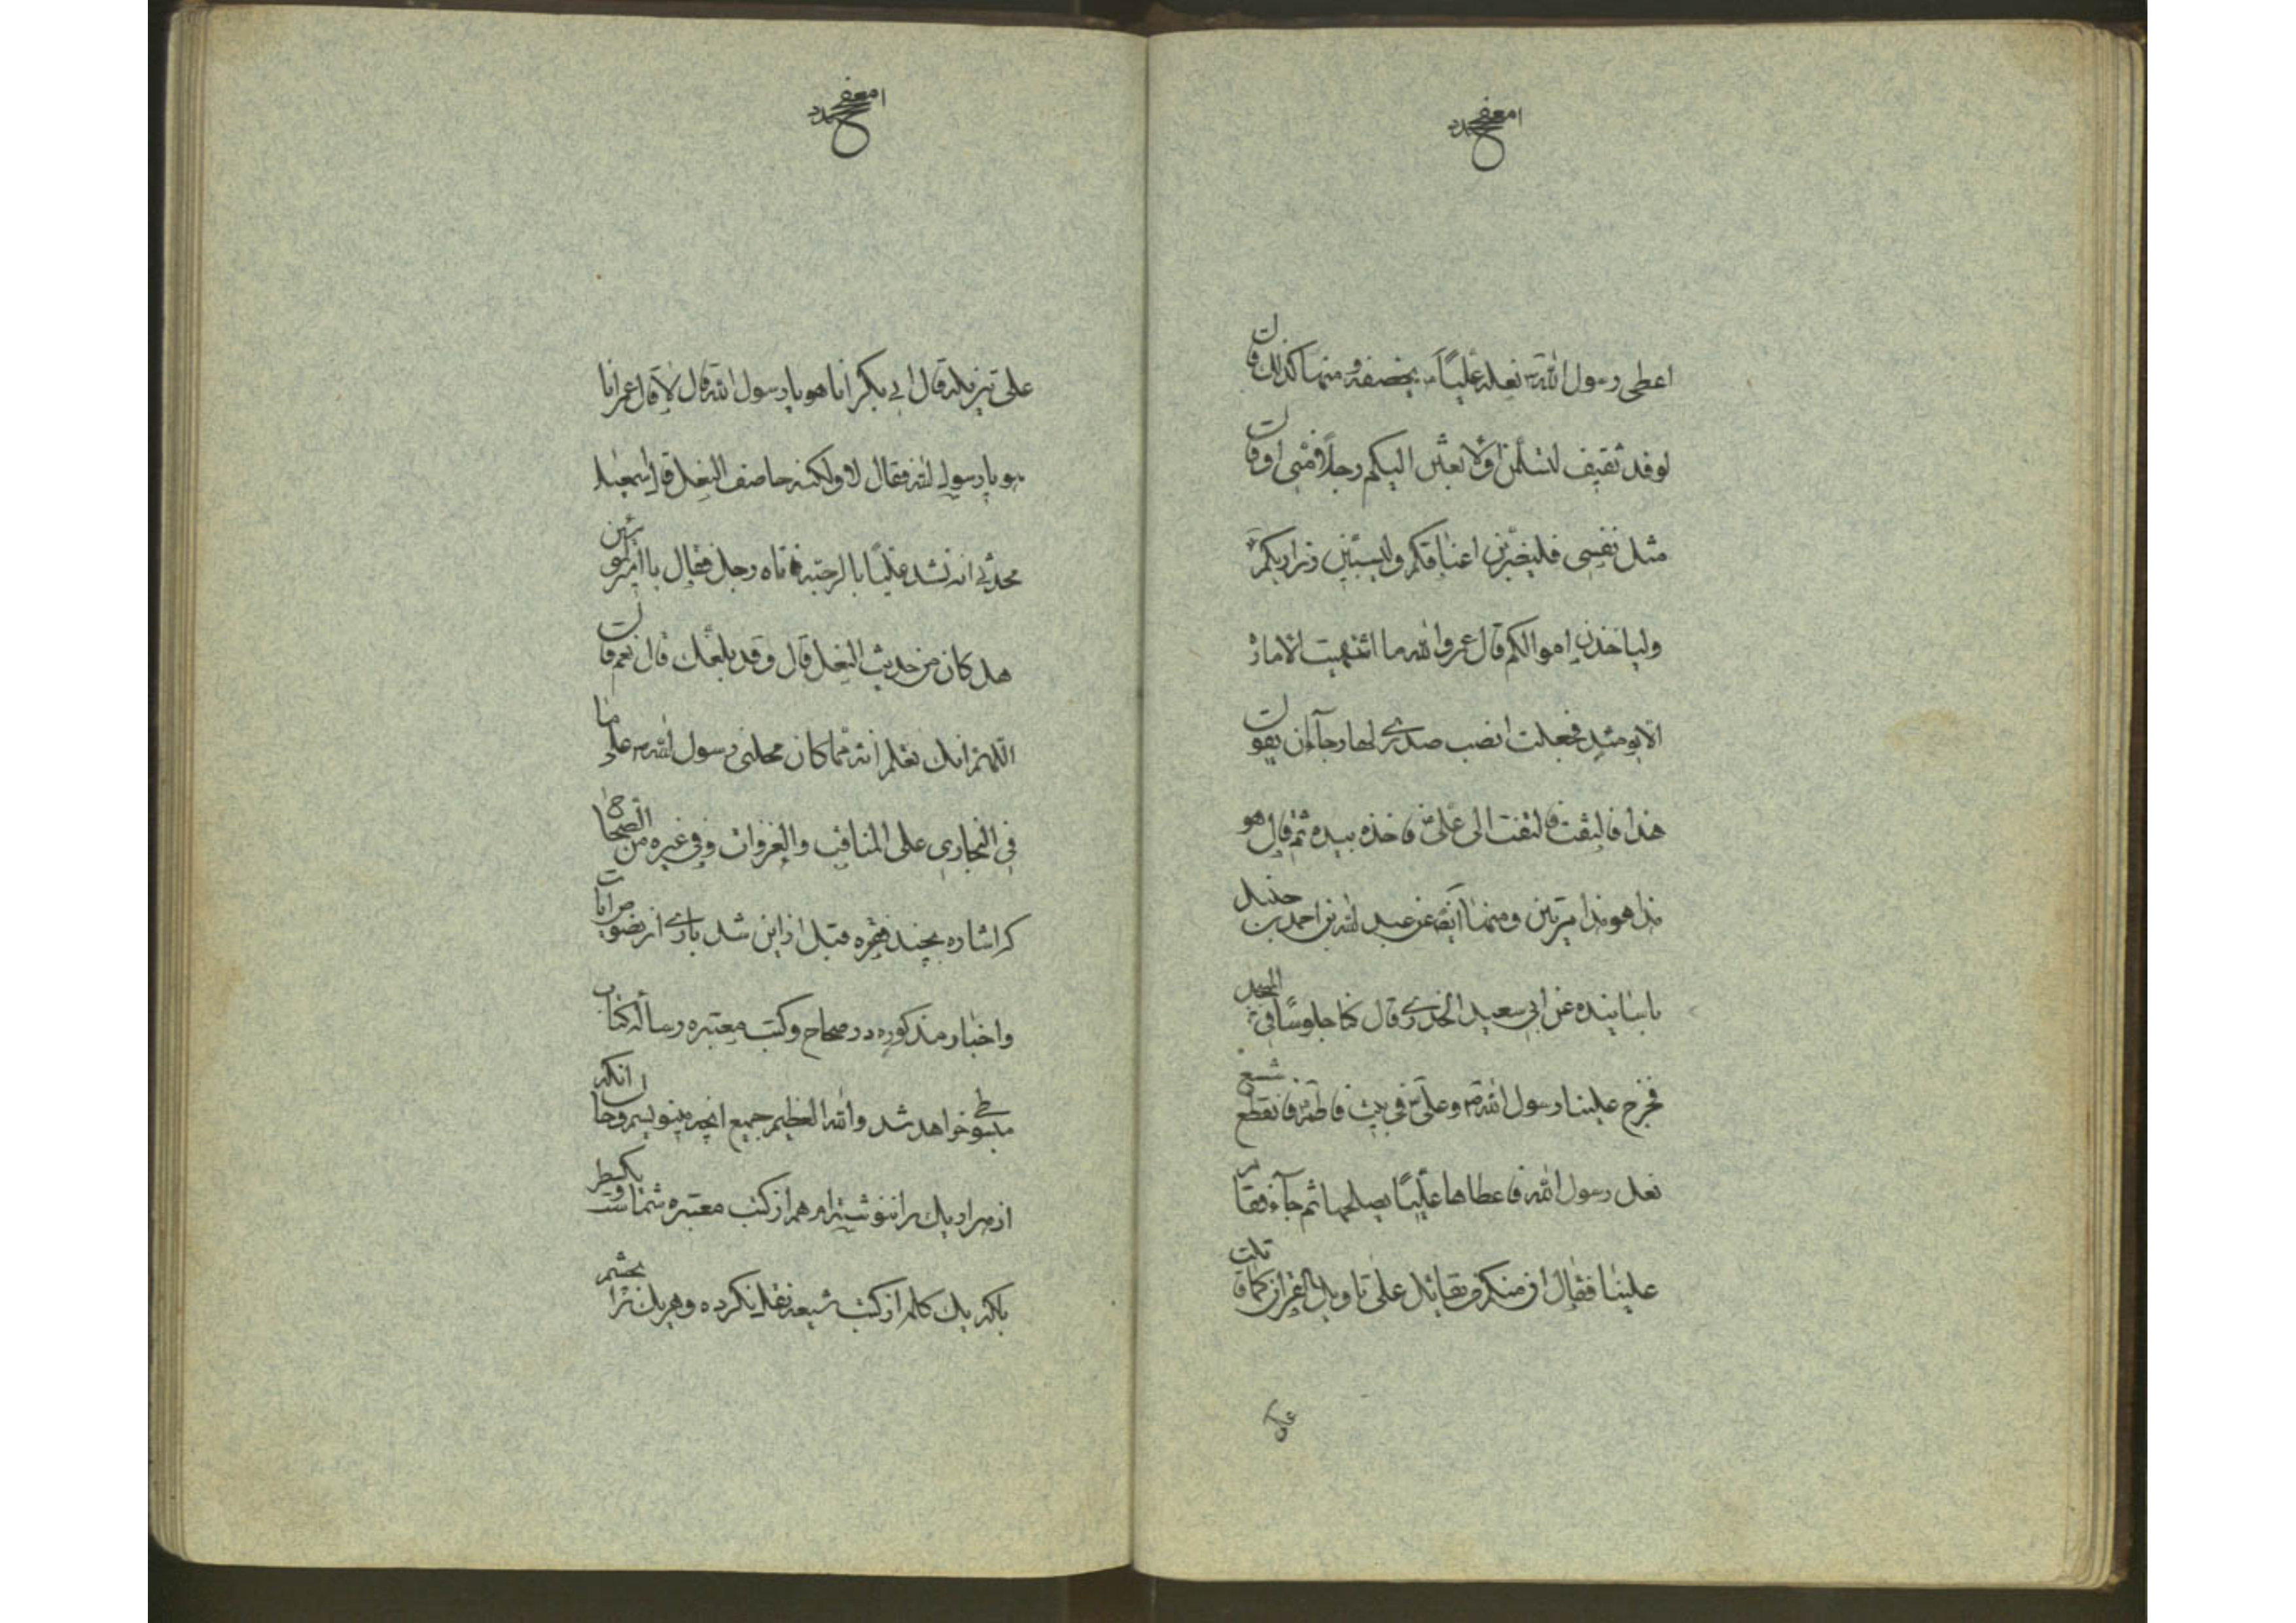 اعطى رسول الله ص نعله عليّاً يخصفه و منها كذلك قال
لوفد ثقيف لتسلمن او لابعثن اليكم رجلاً منى او قال
مثل نفسى فليضربن اعناقكم وليسبين ذراريكم
ولياخذن اموالكم قال عمر والله ما اشتهيت الامارة
الا يومئذ فجعلت انصب صدرى لها رجاء ان يقول
هذا فالتفت الى على فاخذه بيده ثم قال هو
هذا هو هذا مرتين و منها ايضاً عن عبد الله بن احمد بن حنبل
باسانيده عن ابى سعيد الخدرى قال كنا جلوساً فى المسجد
فخرج علينا رسول الله ص و على فى بيت فاطمة فانقطع شسع
نعل رسول الله فاعطاها عليّاً يصلحها ثم جاء فقام
علينا فقال ان منكم من يقاتل على تاويل القران كما قاتلت
على تنزيله قال ابى بكر انا هو يا رسول الله قال لا قال عمر انا
هو يا رسول الله فقال لا ولكنه خاصف النعل قال اسمعيل
محدثى انه شهد عليّاً بالرحبة فاتاه رجل فقال يا امير المؤمنين
هل كان من حديث النعل قال و قد بلغك قال نعم قال
اللهم انك تعلم انه مما كان رسول الله ص
فى البخارى على المناقب والغزوات و فى غيره من الصحاح
كه اشاره بچند فقره قبل از اين شد بارى از
و اخبار مذكوره در صحاح و كتب معتبره رساله كتاب
مبسوطى خواهد شد والله العظيم جميع انچه مينويسم و حال انكه
از هزار يك را ننوشته ام هم از كتب معتبره شما است و يكسطر
بلكه يك كلمه از كتب شيعه نقل نكرده و هر يك را بچشم